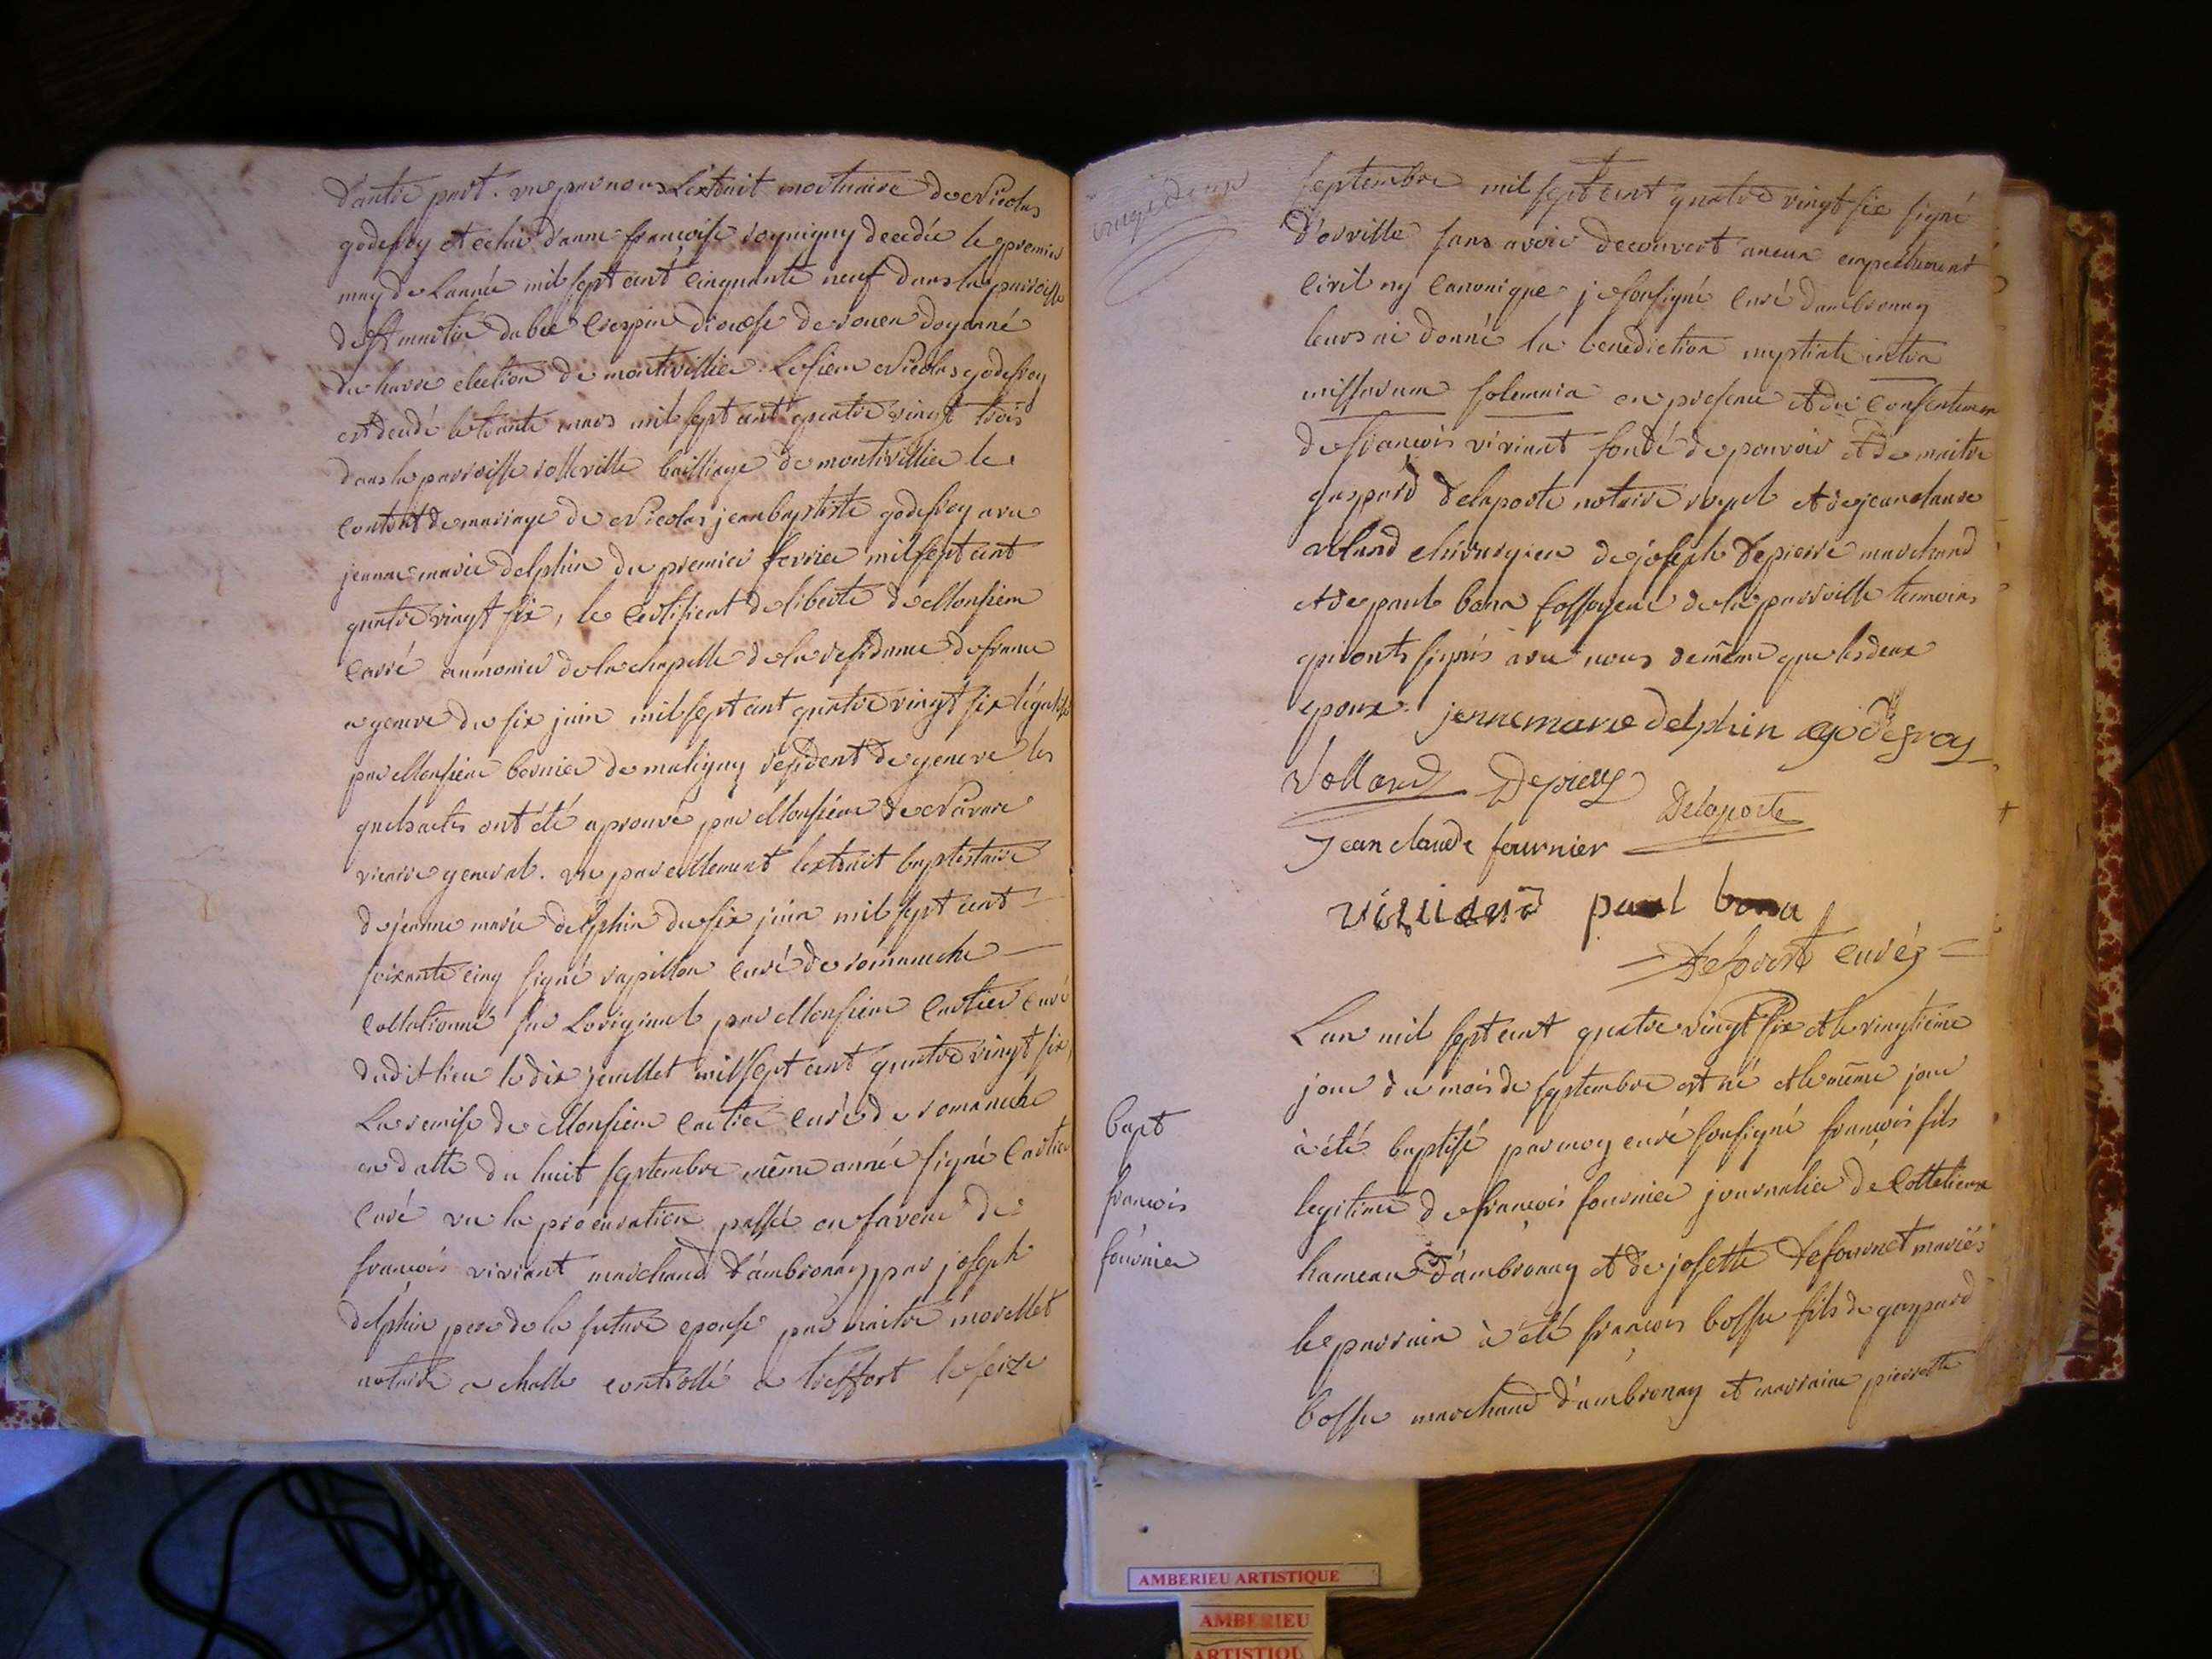 d'autre part. vu par nous Lextrait mortuaire de Nicolas
godefroy et celui d'anne françoise soynigny decedée le premier
may de Lannée mil sept cent cinquante neuf dans la paroisse
de st martin du bec crespin diocese de rouen doyenné
du havre election de montivillier. Le sieur Nicolas godefroy
est decedé le trente mars mil sept cent quatre vingt trois
dans la parroisse rolleville bailliage de montivillier le
contrat de mariage de Nicolas jean baptiste godefroy avec
jeanne marie delphin du premier fevrier mil sept cent
quatre vingt six, le certificat de liberté de Monsieur
carré aumonier de la chapelle de la residance de france
a geneve du six juin mil sept cent quatre vingt six légalisé
par Monsieur bernier de maligny resident de geneve les
quels actes ont été aprouvé par Monsieur de Navarre
vicaire general. vu pareillement lextrait baptistaire
de jeanne marie delphin du six juin mil sept cent
soixante cinq signé papillon curé de romaneche
collationné sur Loriginal par Monsieur cartier curé
dudit lieu le dix jeuillet mil sept cent quatre vingt six,
La remise de Monsieur cartier curé de romaneche
en datte du huit septembre même année signé Cartier
Curé vu la procuration passée en faveur de
françois viviant marchand d'ambronay par joseph
delphin pere de la future epouse par maitre morellet
notaire a challe controllé a treffort le seize
vingt deux
septembre mil sept cent quatre vingt six signé
d'orville sans avoir decouvert aucun empechement
Civil ny Canonique je sousigné curé dambronay
leurs ai donné la benediction nuptiale intra
missarum solemnia en presence et du consentement
de françois viviant fondé de pouvoir et de maitre
gaspard delaporte notaire royal et de jean claude
volland chirurgien de joseph depierre marchand
et de paul bona fossoyeur de la parroisse temoins
qui onts signés avec nous de même que les deux
epoux. jenne marie delphin godefroy
Volland Depierre
Delaporte
Jean claude fournier
viviand paul bona
Curé
Lan mil sept cent quatre vingt six et le vingtieme
jour du mois de septembre est né et le même jour
à été baptisé par moy curé sousigné françois fils
legitime de françois fournier journalier de Cottelieux
hameau d'ambronay et de josette defournet mariés
le parrain à été françois bossu fils de gaspard
bossu marchand d'ambronay et marraine pierrette
bapt
françois
fournier
AMBERIEU ARTISTIQUE
AMBERIEU
ARTISTIQU